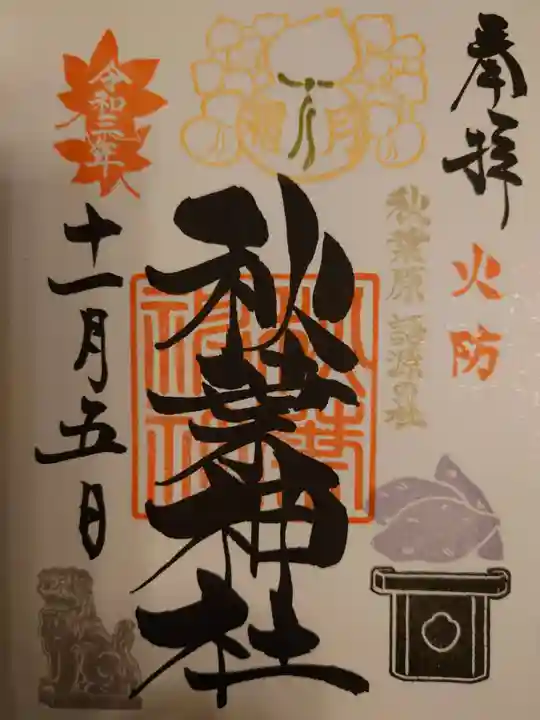 奉拝
火防
秋葉原 語源社
霜月
秋葉神社
秋葉神社
令和三年
十一月五日